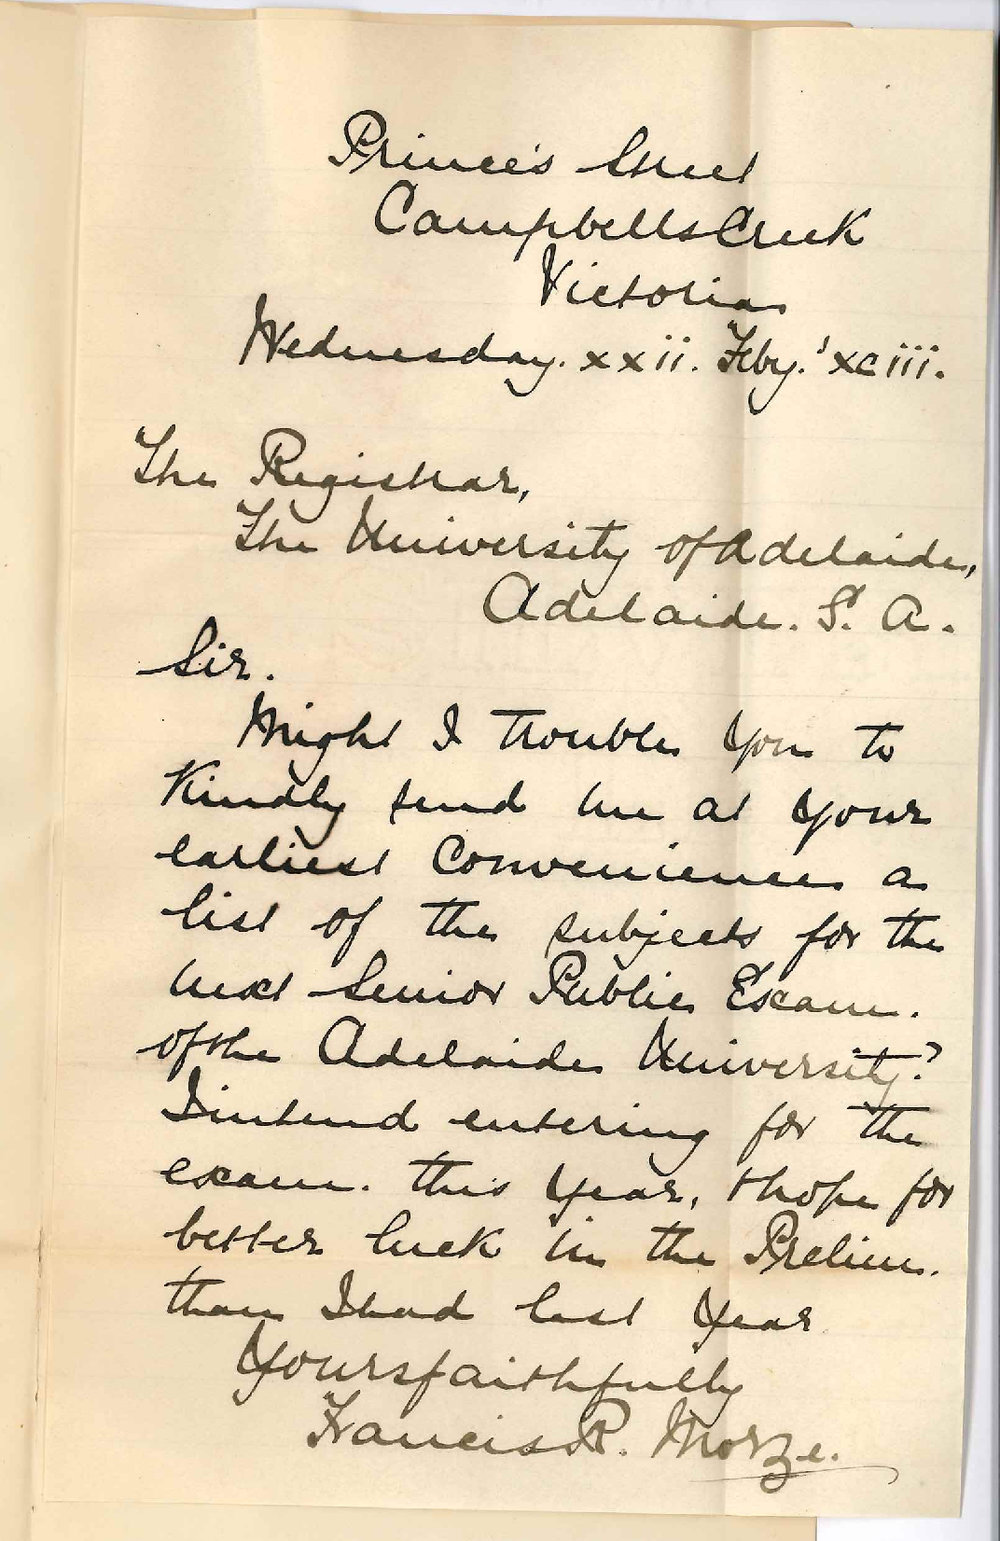 Prince's Street
Campbells Creek
Victoria
Wednesday. xxii. Feby. 'xciii.
The Registrar,
The University of Adelaide,
Adelaide. S. A.
Sir.
Might I trouble you to
kindly send me at your
earliest convenience a
list of the subjects for the
next Senior Public Exam.
of the Adelaide University?
I intend entering for the
exam. this year, & hope for
better luck in the Prelim.
than I had last year
Yours faithfully
Francis R. Morze.